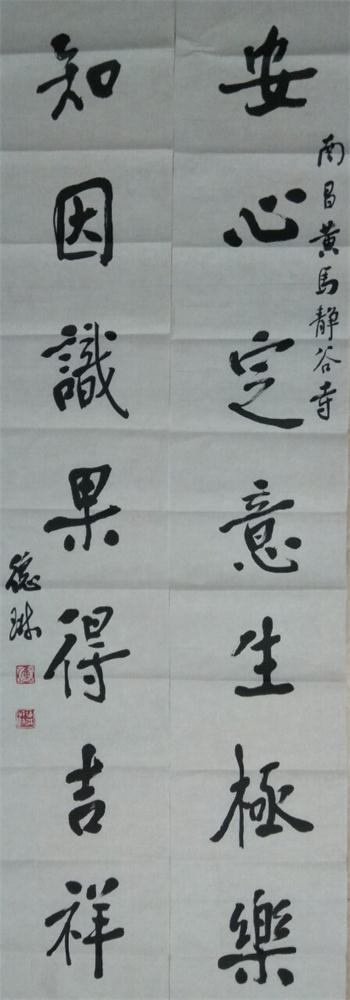 南昌黄馬靜谷寺
安心定意生極樂
知因識果得吉祥
德琳